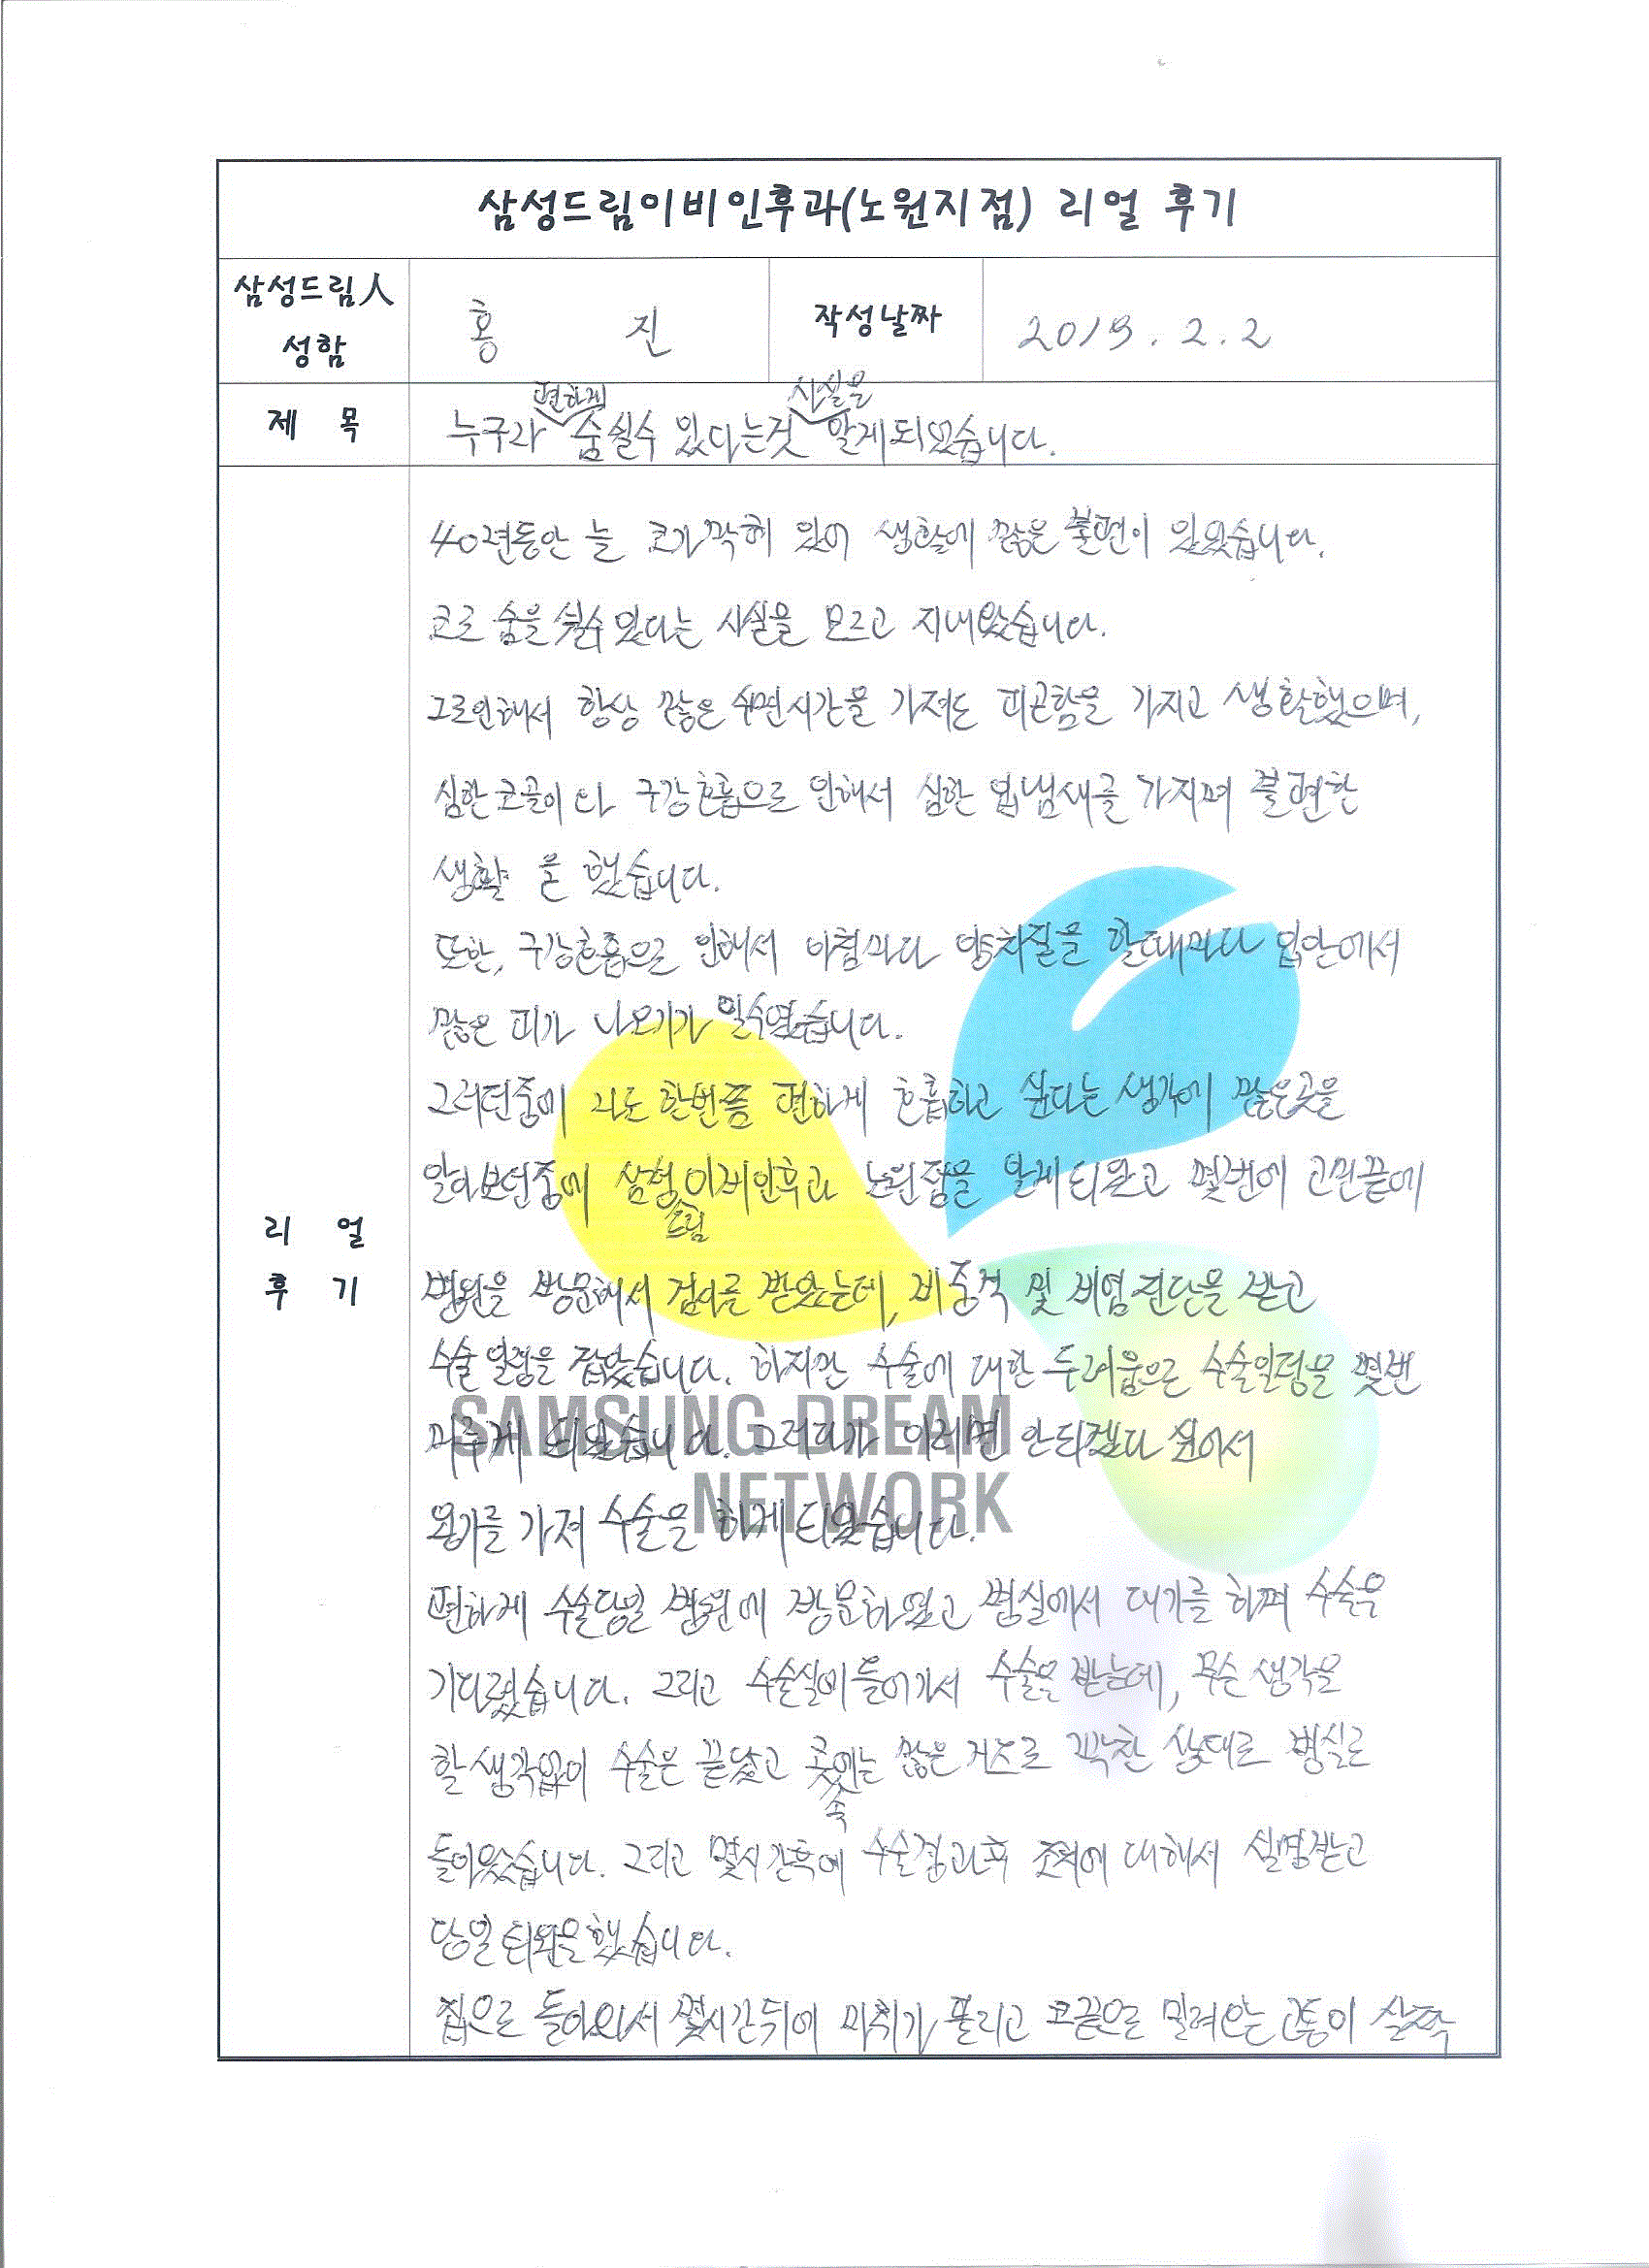 삼성드림이비인후과(노원지점) 리얼 후기
삼성드림人
성함
홍 진
작성날짜
2019. 2. 2
제 목
편하게 사실을
누구라 숨쉴수 있다는것 알게되었습니다.
40년동안 늘 코가막혀 있어 생활에 많은 불편이 있었습니다.
코로 숨을 쉴수 있다는 사실을 모르고 지내왔습니다.
그로인해서 항상 많은 수면시간을 가져도 피곤함을 가지고 생활했으며,
심한 코골이와 구강호흡으로 인해서 심한 입냄새를 가지며 불편한
생활 을 했습니다.
또한, 구강호흡으로 인해서 아침마다 양치질을 할때마다 입안에서
많은 피가 나오기가 일수였습니다.
그러던중에 나도 한번쯤 편하게 호흡하고 싶다는 생각에 많은곳을
알아보던중에 삼성 이비인후과 노원점을 알게되었고 몇번에 고민끝에
드림
리 얼
후 기
병원을 방문해서 검사를 받았는데, 비중격 및 비염진단을 받고
수술일정을 잡았습니다. 하지만 수술에 대한 두려움으로 수술일정을 몇번
미루게 되었습니다. 그러다가 이러면 안되겠다 싶어서
SAMSUNG DREAM
NETWORK
용기를 가져 수술을 하게되었습니다.
편하게 수술당일 병원에 방문하였고 병실에서 대기를 하며 수술을
기다렸습니다. 그리고 수술실에 들어가서 수술을 받는데, 무슨 생각을
할 생각없이 수술은 끝났고 콧에는 많은 거즈로 꽉찬 상태로 병실로
속
돌아왔습니다. 그리고 몇시간후에 수술결과후 조치에 대해서 설명받고
당일 퇴원을했습니다.
집으로 돌아와서 몇시간뒤에 마취가 풀리고 코끝으로 밀려오는 고통이 살짝